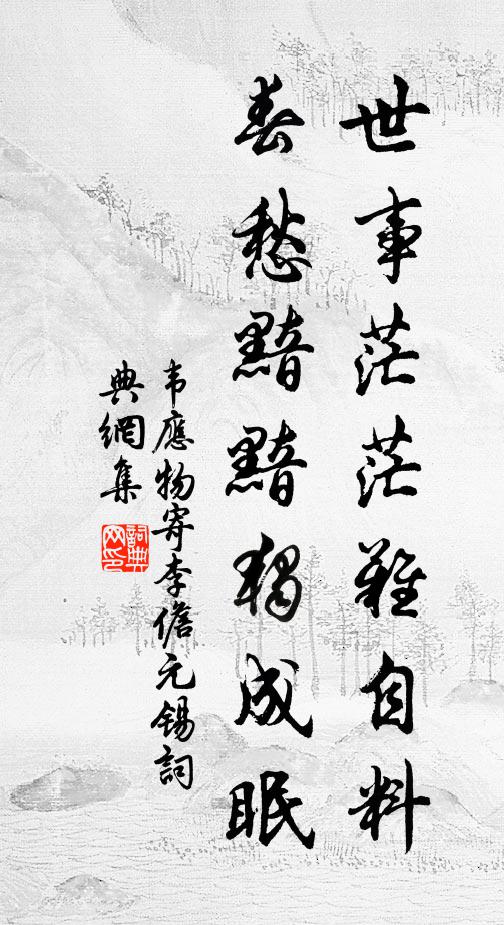 世事茫茫難自料
春愁黯黯獨成眠
韦應物寄李儋元锡詞
典網集
詞典网印